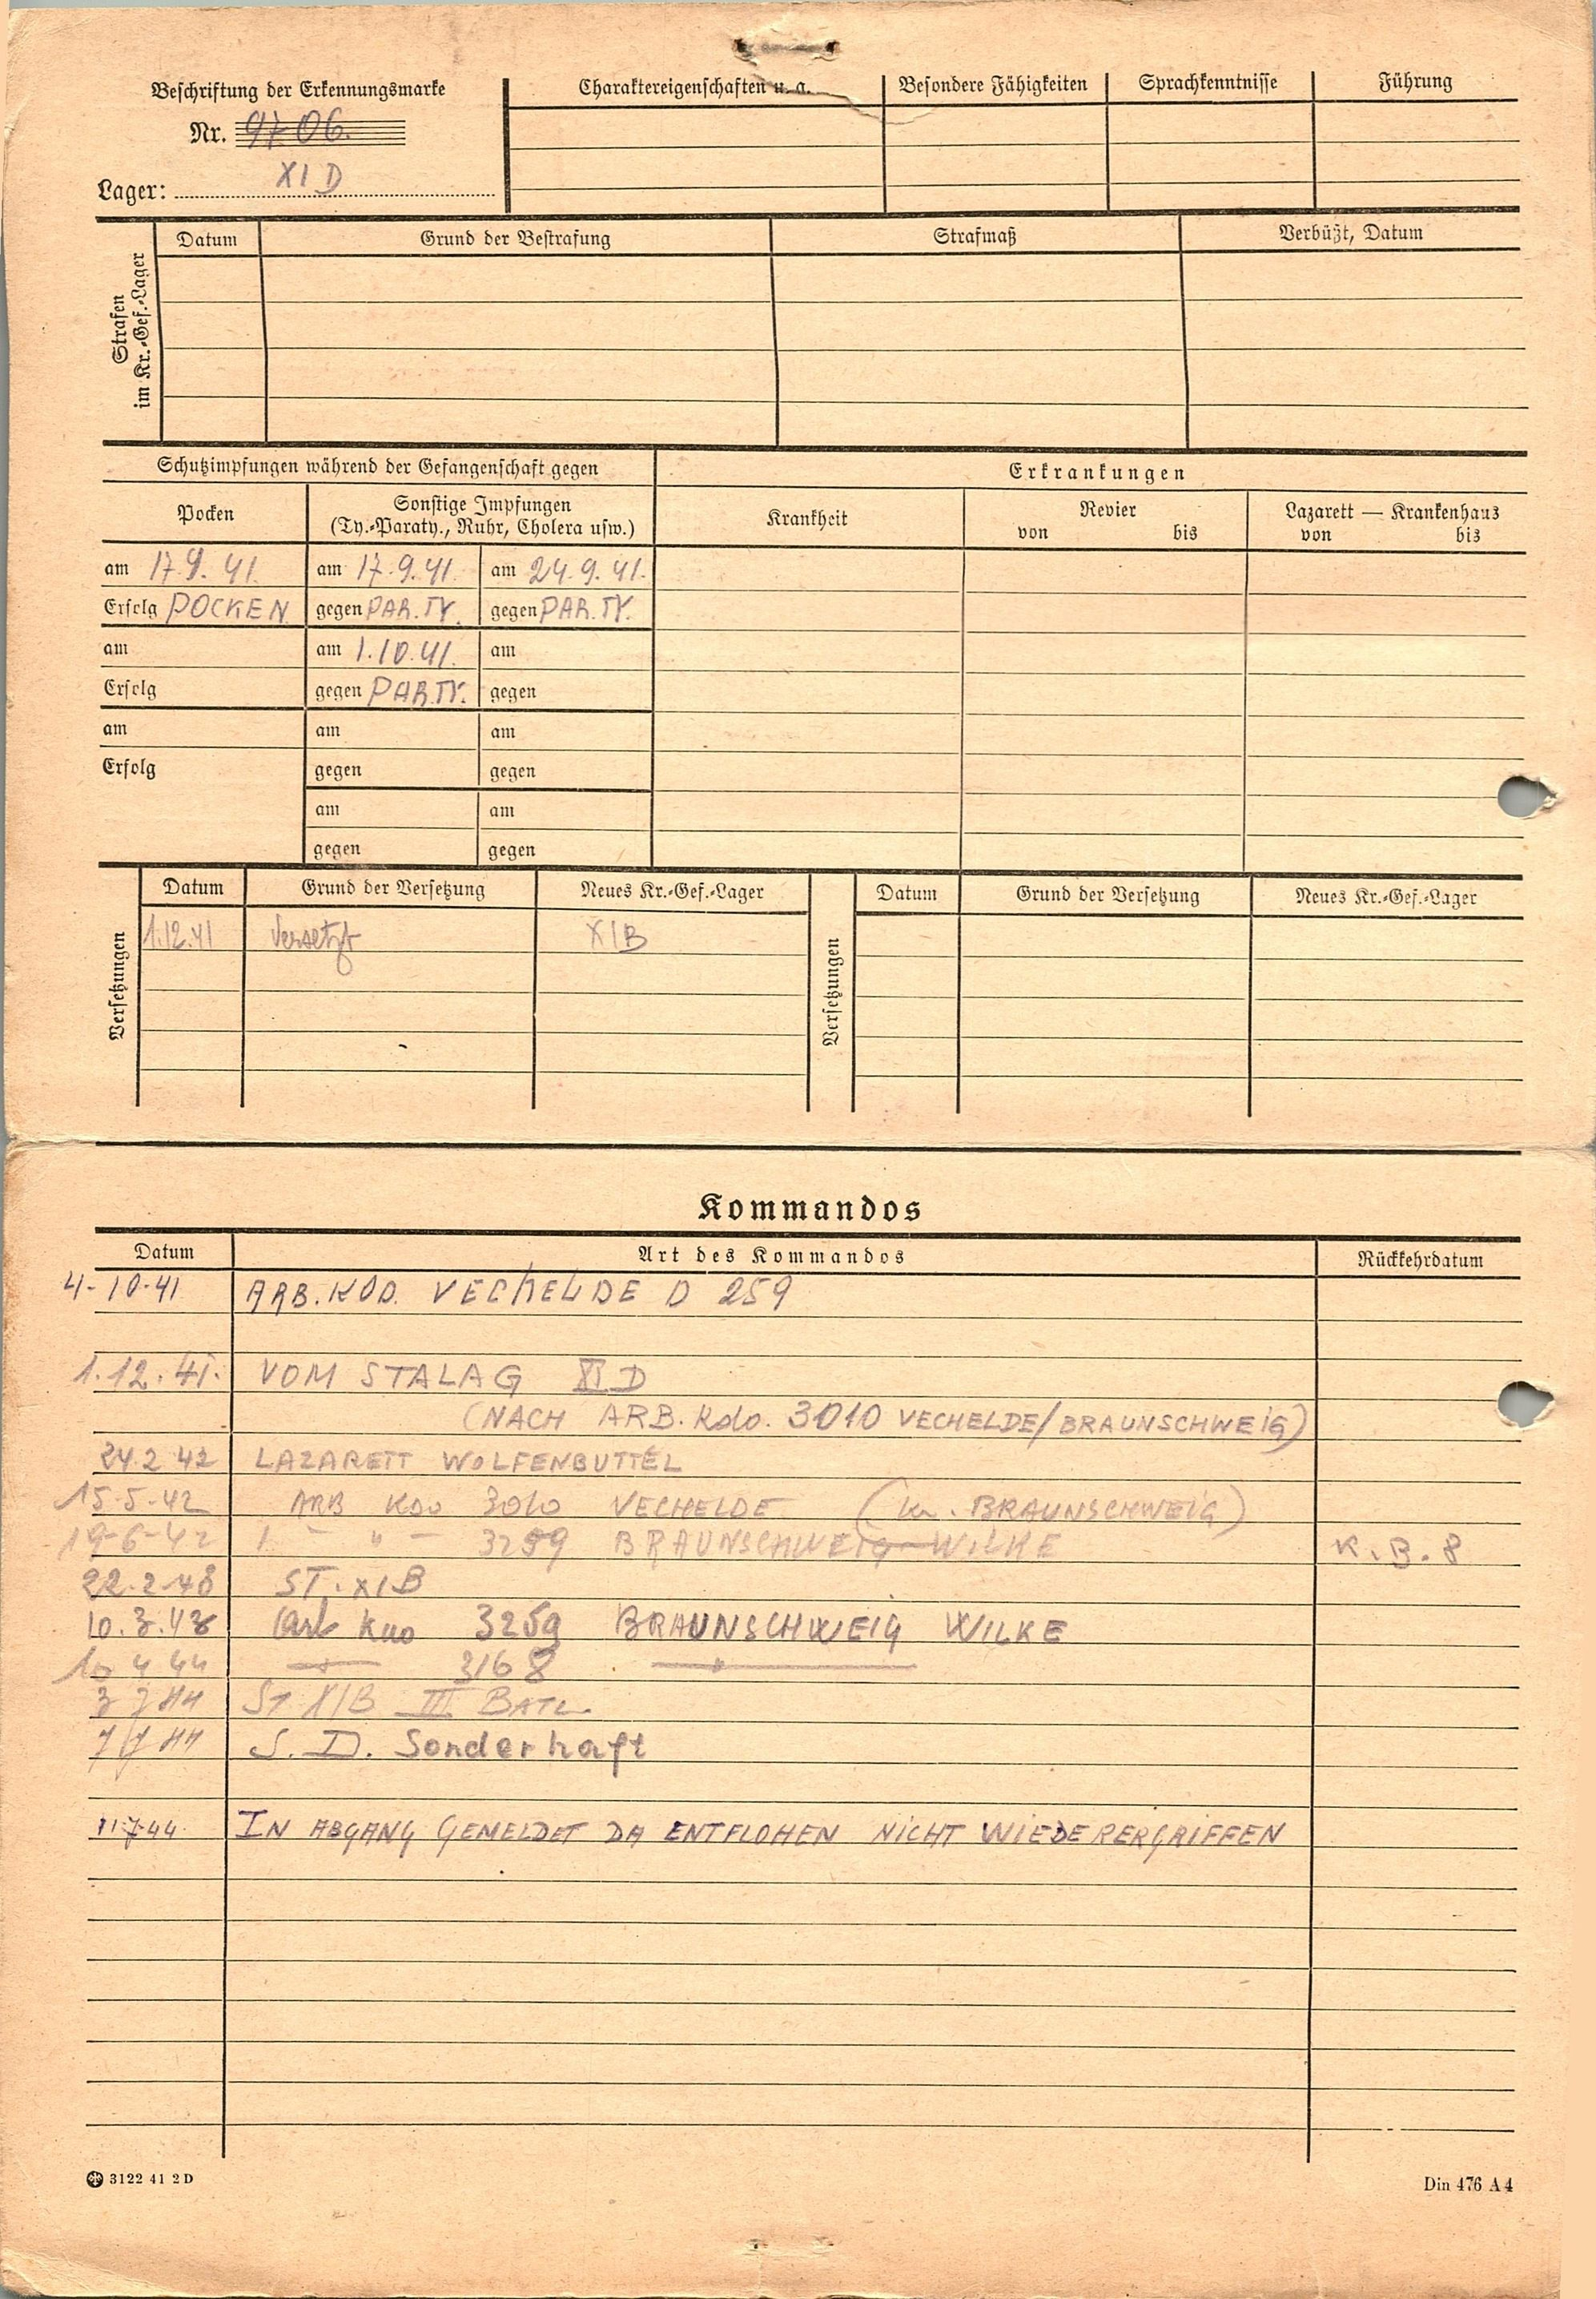 Beschriftung der Erkennungsmarke
Nr. 9706.
Lager: XI D
Charaktereigenschaften u. a. Besondere Fähigkeiten Sprachkenntnisse Führung
Strafen im Kr.-Gef.-Lager
Datum Grund der Bestrafung Strafmaß Verbüßt, Datum
Schutzimpfungen während der Gefangenschaft gegen Erkrankungen
Pocken Sonstige Impfungen Krankheit Revier Lazarett — Krankenhaus
(Ty.-Paraty., Ruhr, Cholera usw.) von bis von bis
am 17.9.41. am 17.9.41. am 24.9.41.
Erfolg POCKEN gegen PAR.TY. gegen PAR.TY.
am am 1.10.41. am
Erfolg gegen PAR.TY. gegen
am am am
Erfolg gegen gegen
am am
gegen gegen
Versetzungen
Datum Grund der Versetzung Neues Kr.-Gef.-Lager
1.12.41 Versetzt XIB
Versetzungen
Datum Grund der Versetzung Neues Kr.-Gef.-Lager
Kommandos
Datum Art des Kommandos Rückkehrdatum
4-10-41 ARB.KDO. VECHELDE D 259
1.12.41. VOM STALAG XI D
(NACH ARB. Kdo. 3010 VECHELDE/BRAUNSCHWEIG)
24.2 42 LAZARETT WOLFENBUTTEL
15-5-42 ARB Kdo 3010 VECHELDE (Kr. BRAUNSCHWEIG)
19-6-42 " 3259 BRAUNSCHWEIG-WILKE K.B.8
22.2.43 ST. XIB
10.3.43 Arb Kdo 3259 BRAUNSCHWEIG WILKE
10 4 44 —"— 3168 —"—
3 7 44 ST XIB III BATL.
7/7 44 S. D. Sonderhaft
11744. IN ABGANG GEMELDET DA ENTFLOHEN NICHT WIEDERERGRIFFEN
3122 41 2 D Din 476 A 4